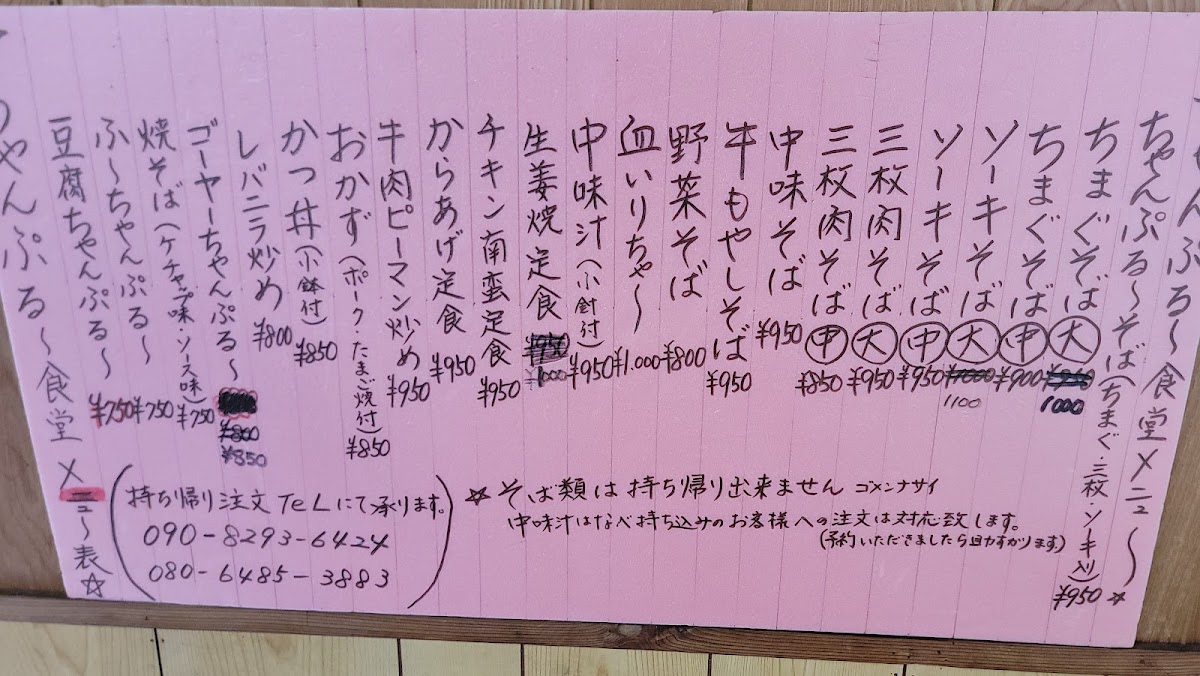 ちゃんぷる〜食堂メニュ〜☆
ちゃんぷる〜そば(ちまぐ・三枚・ソーキ入り)¥950
ちまぐそば 大 1000
ちまぐそば 中 ¥900
ソーキそば 大 ¥1000 1100
ソーキそば 中 ¥950
三枚肉そば 大 ¥950
三枚肉そば 中 ¥850
中味そば ¥950
牛もやしそば ¥950
野菜そば ¥800
血いりちゃ〜 ¥1.000
中味汁(小鉢付) ¥950
生姜焼定食 ¥950 ¥1000
チキン南蛮定食 ¥950
からあげ定食 ¥950
牛肉ピーマン炒め ¥950
おかず(ポーク・たまご焼付) ¥850
かつ丼(小鉢付) ¥850
レバニラ炒め ¥800
ゴーヤーちゃんぷる〜 ¥800 ¥850
焼そば(ケチャップ味・ソース味) ¥750
ふ〜ちゃんぷる〜 ¥750
豆腐ちゃんぷる〜 ¥750
ちゃんぷる〜食堂メニュ〜表☆
(持ち帰り注文TeLにて承ります。
090-8293-6424
080-6485-3883)
☆そば類は持ち帰り出来ません ゴメンナサイ
中味汁はなべ持ち込みのお客様への注文は対応致します。
(予約いただきましたら助かります)